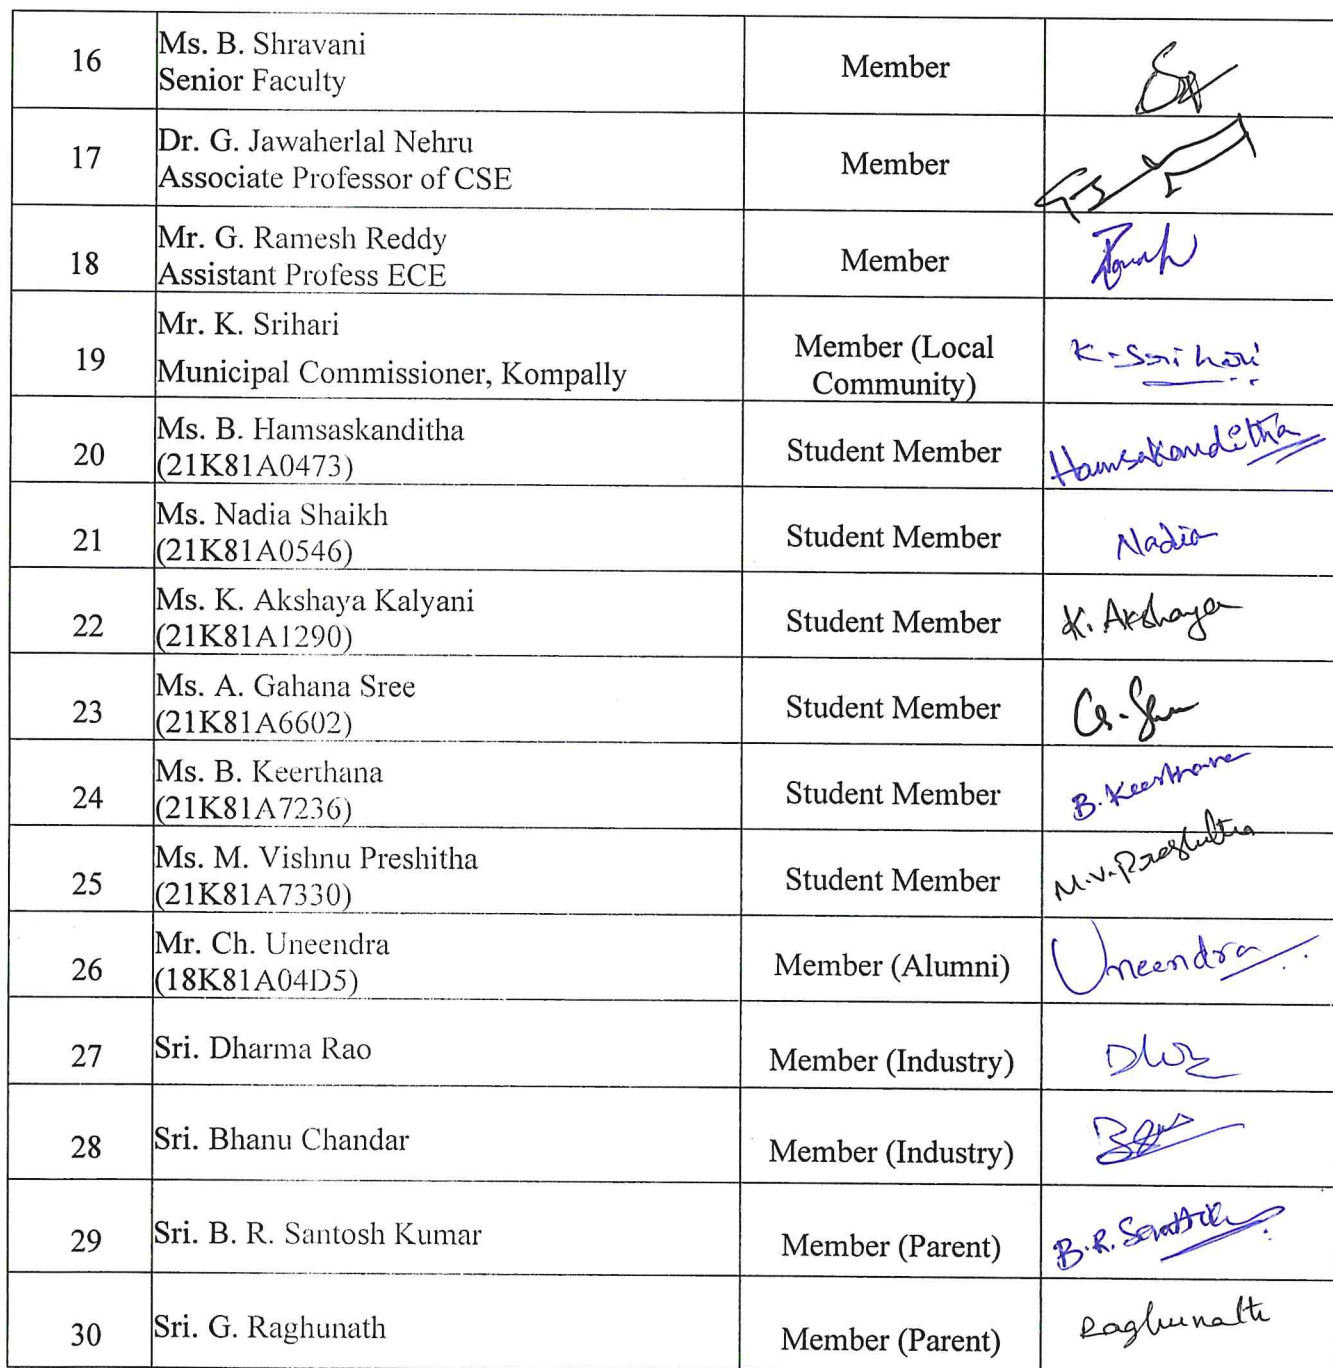 16
Ms. B. Shravani
Senior Faculty
Member
17
Dr. G. Jawaherlal Nehru
Associate Professor of CSE
Member
18
Mr. G. Ramesh Reddy
Assistant Profess ECE
Member
19
Mr. K. Srihari
Municipal Commissioner, Kompally
Member (Local
Community)
K. Srihari
20
Ms. B. Hamsaskanditha
(21K81A0473)
Student Member
Hamsakanditha
21
Ms. Nadia Shaikh
(21K81A0546)
Student Member
Nadia
22
Ms. K. Akshaya Kalyani
(21K81A1290)
Student Member
K. Akshaya
23
Ms. A. Gahana Sree
(21K81A6602)
Student Member
24
Ms. B. Keerthana
(21K81A7236)
Student Member
B. Keerthana
25
Ms. M. Vishnu Preshitha
(21K81A7330)
Student Member
M.V. Preshitha
26
Mr. Ch. Uneendra
(18K81A04D5)
Member (Alumni)
Uneendra
27
Sri. Dharma Rao
Member (Industry)
28
Sri. Bhanu Chandar
Member (Industry)
29
Sri. B. R. Santosh Kumar
Member (Parent)
B.R.
30
Sri. G. Raghunath
Member (Parent)
Raghunath